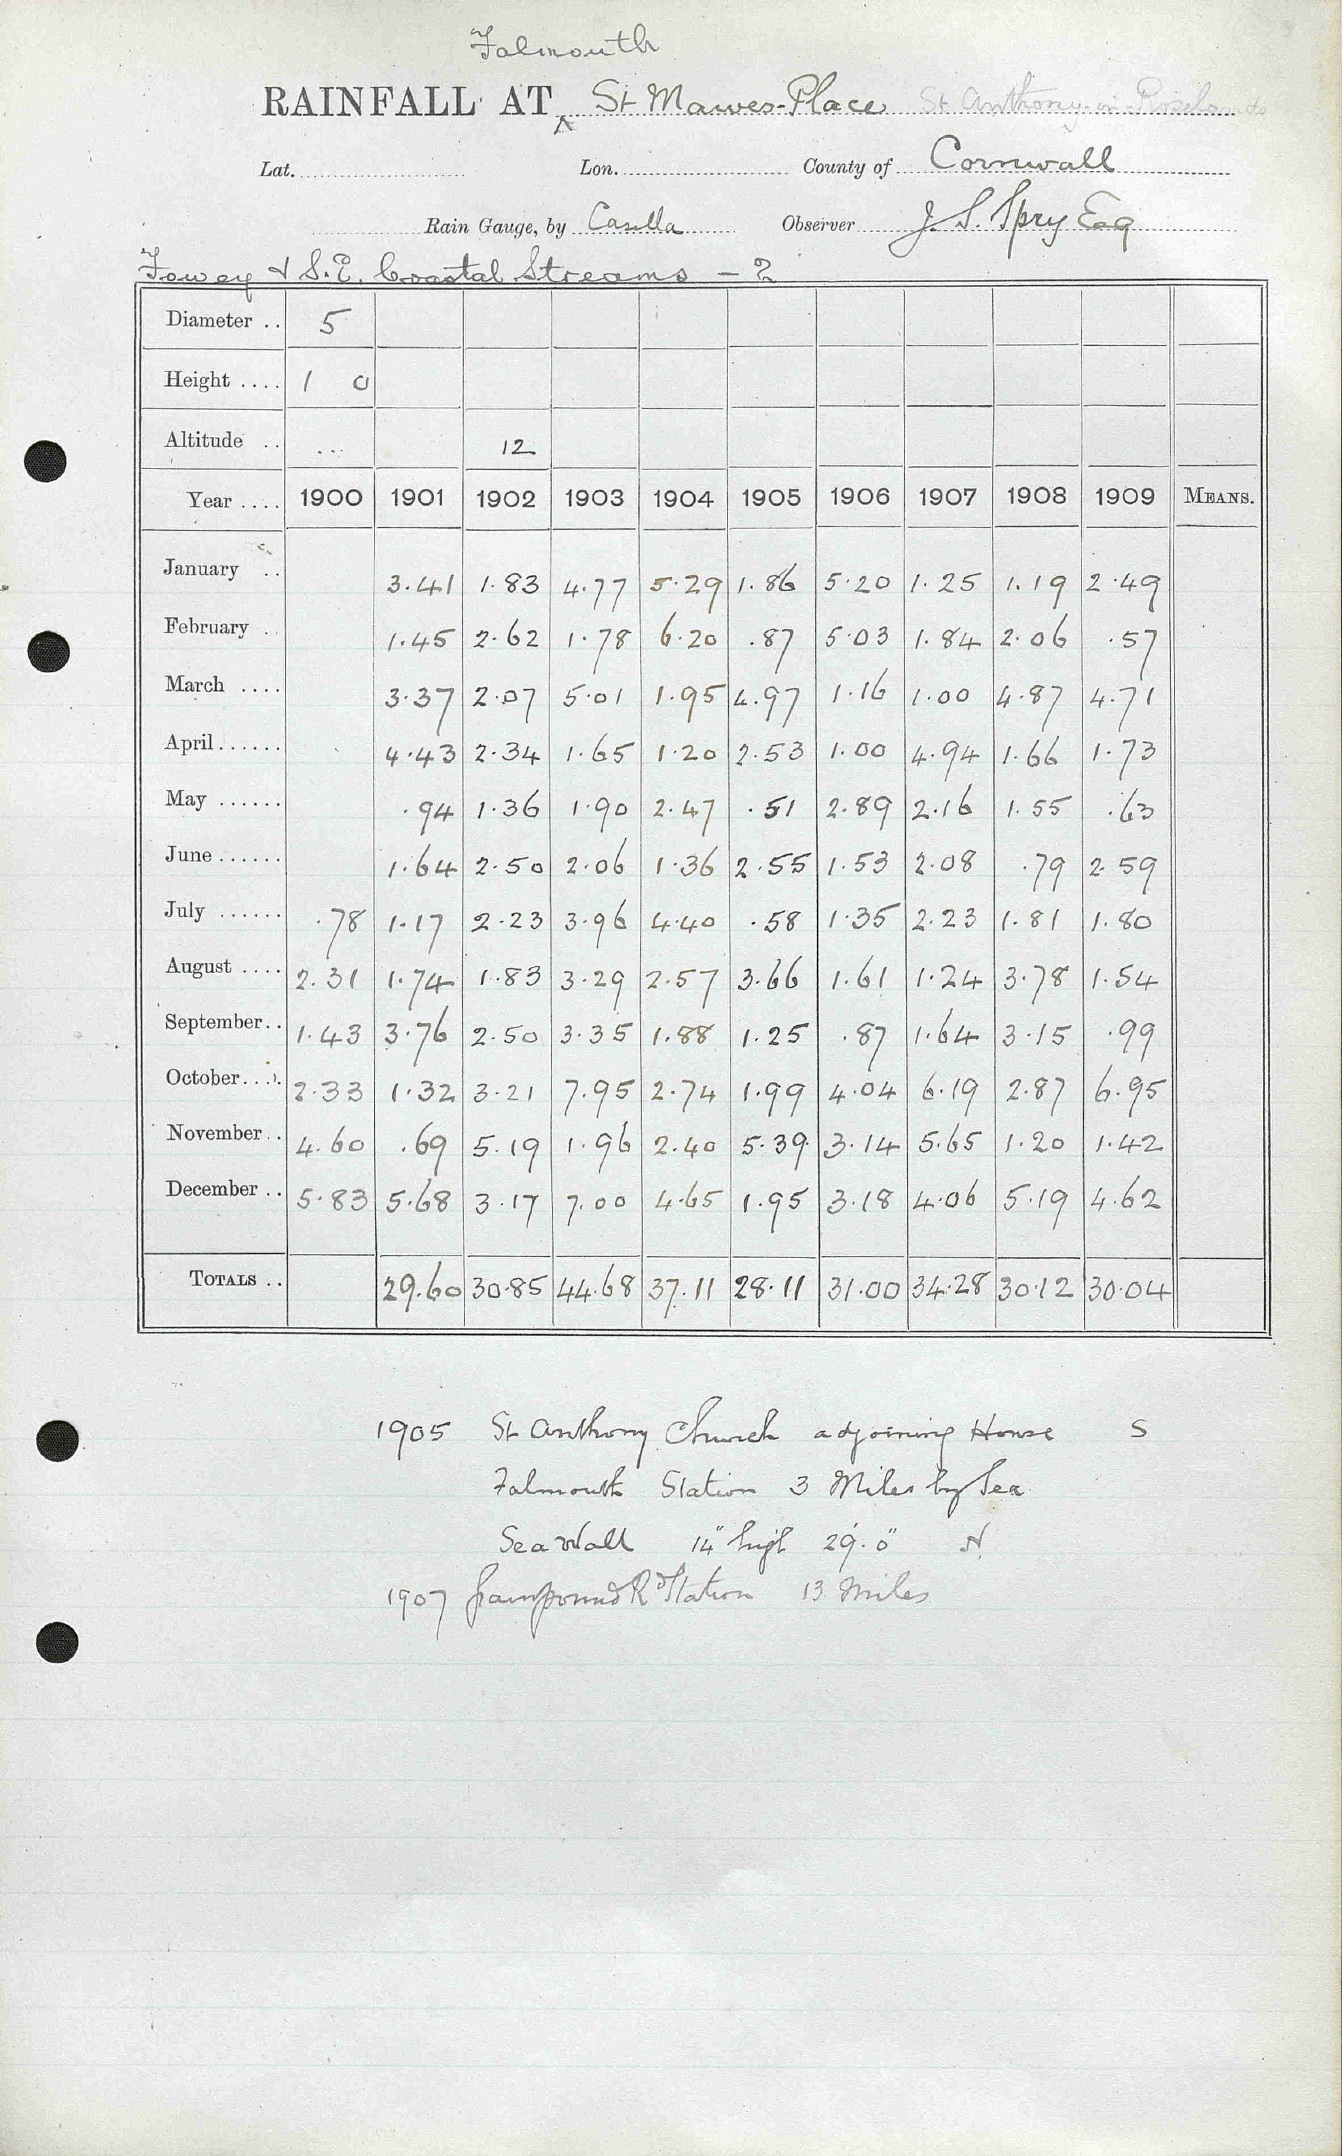 Falmouth
RAINFALL AT St Mawes-Place St Anthony-in-Roseland
Lat. Lon. County of Cornwall
Rain Gauge, by Casella Observer J. S. Spry Esq
Fowey & S.E. Coastal Streams - 2
Diameter .. 5
Height .... 1 0
Altitude .. ... 12
Year .... 1900 1901 1902 1903 1904 1905 1906 1907 1908 1909 MEANS.
January .. 3.41 1.83 4.77 5.29 1.86 5.20 1.25 1.19 2.49
February . 1.45 2.62 1.78 6.20 .87 5.03 1.84 2.06 .57
March .... 3.37 2.07 5.01 1.95 4.97 1.16 1.00 4.87 4.71
April ...... 4.43 2.34 1.65 1.20 2.53 1.00 4.94 1.66 1.73
May ...... .94 1.36 1.90 2.47 .51 2.89 2.16 1.55 .63
June ...... 1.64 2.50 2.06 1.36 2.55 1.53 2.08 .79 2.59
July ...... .78 1.17 2.23 3.96 4.40 .58 1.35 2.23 1.81 1.80
August .... 2.31 1.74 1.83 3.29 2.57 3.66 1.61 1.24 3.78 1.54
September.. 1.43 3.76 2.50 3.35 1.88 1.25 .87 1.64 3.15 .99
October.... 2.33 1.32 3.21 7.95 2.74 1.99 4.04 6.19 2.87 6.95
November.. 4.60 .69 5.19 1.96 2.40 5.39 3.14 5.65 1.20 1.42
December .. 5.83 5.68 3.17 7.00 4.65 1.95 3.18 4.06 5.19 4.62
TOTALS .. 29.60 30.85 44.68 37.11 28.11 31.00 34.28 30.12 30.04
1905 St Anthony Church adjoining House S
Falmouth Station 3 Miles by Sea
Sea Wall 14" high 29'.0" N
1907 Grampound Rd Station 13 Miles